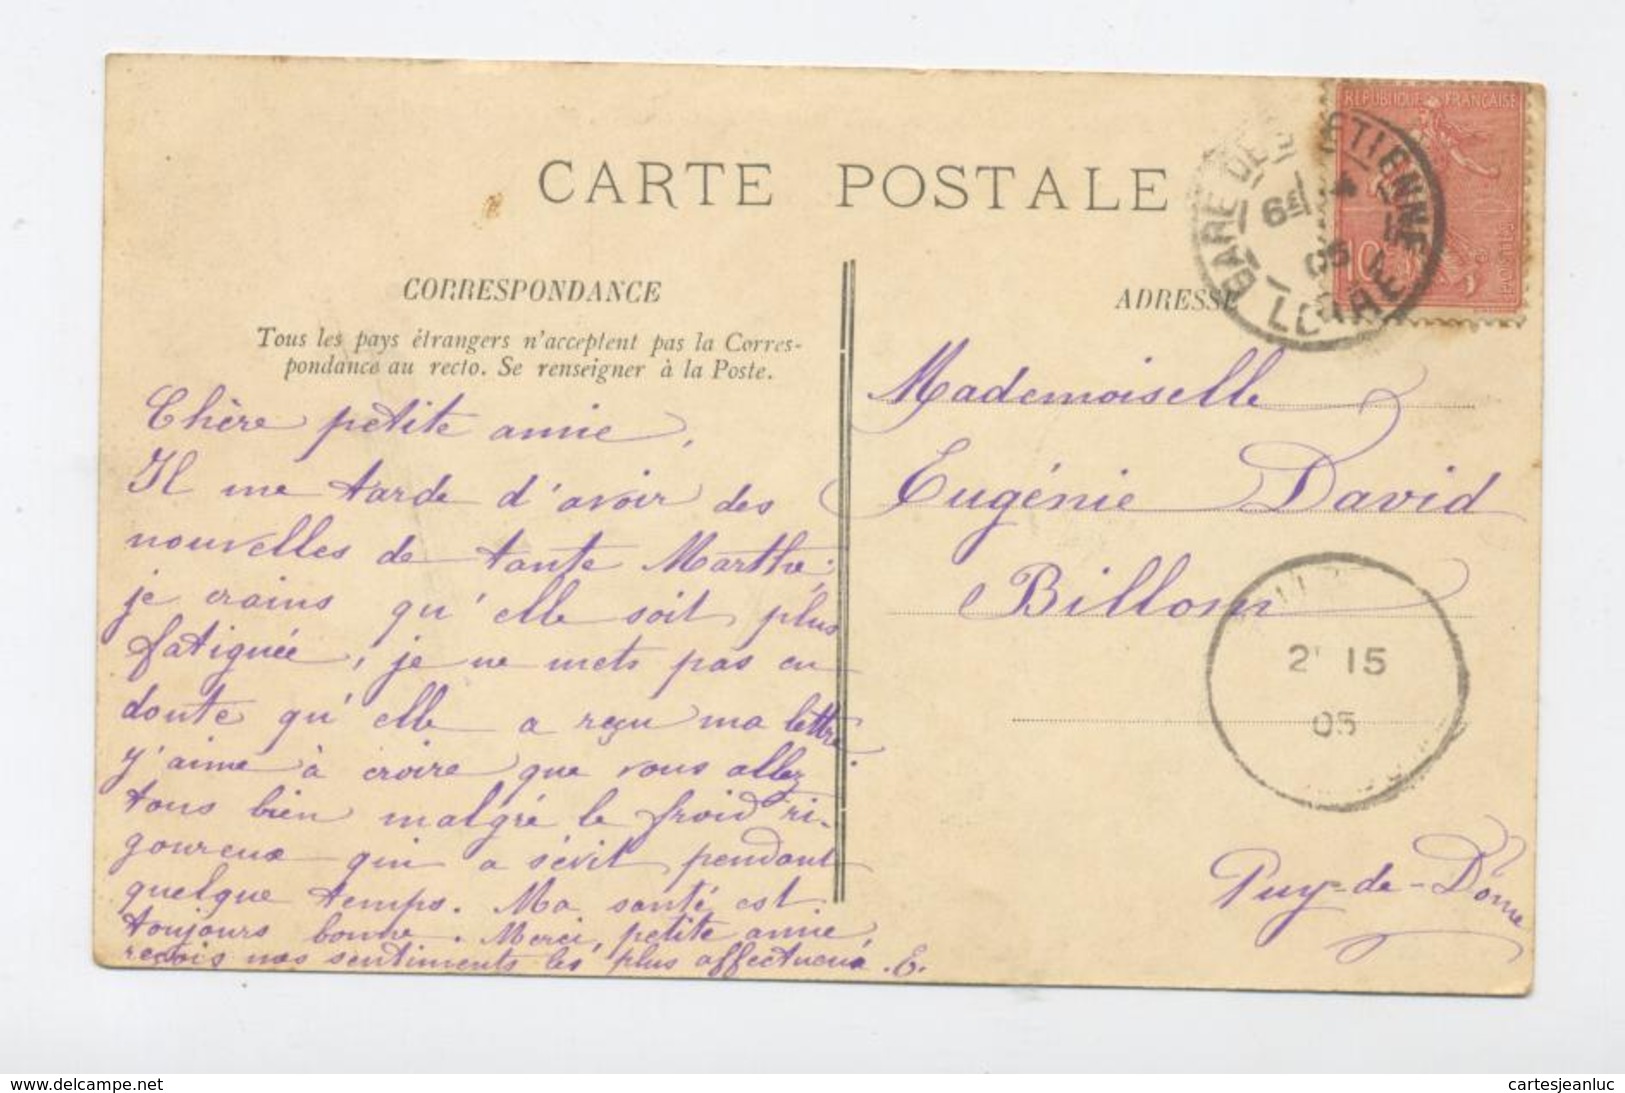 CARTE POSTALE
CORRESPONDANCE
Tous les pays étrangers n'acceptent pas la Corres-
pondance au recto. Se renseigner à la Poste.
Chère petite amie,
Il me tarde d'avoir des
nouvelles de tante Marthe;
je crains qu'elle soit plus
fatiguée, je ne mets pas en
doute qu'elle a reçu ma lettre.
J'aime à croire que vous allez
tous bien malgré le froid ri-
goureux qui a sévit pendant
quelque temps. Ma santé est
toujours bonne. Merci, petite amie,
reçois nos sentiments les plus affectueux. E.
ADRESSE
Mademoiselle
Eugénie David
Billom
Puy-de-Dôme
REPUBLIQUE FRANÇAISE
10
POSTES
GARE DE ST ETIENNE
6E 4
05
LOIRE
2 15
05
www.delcampe.net
cartesjeanluc